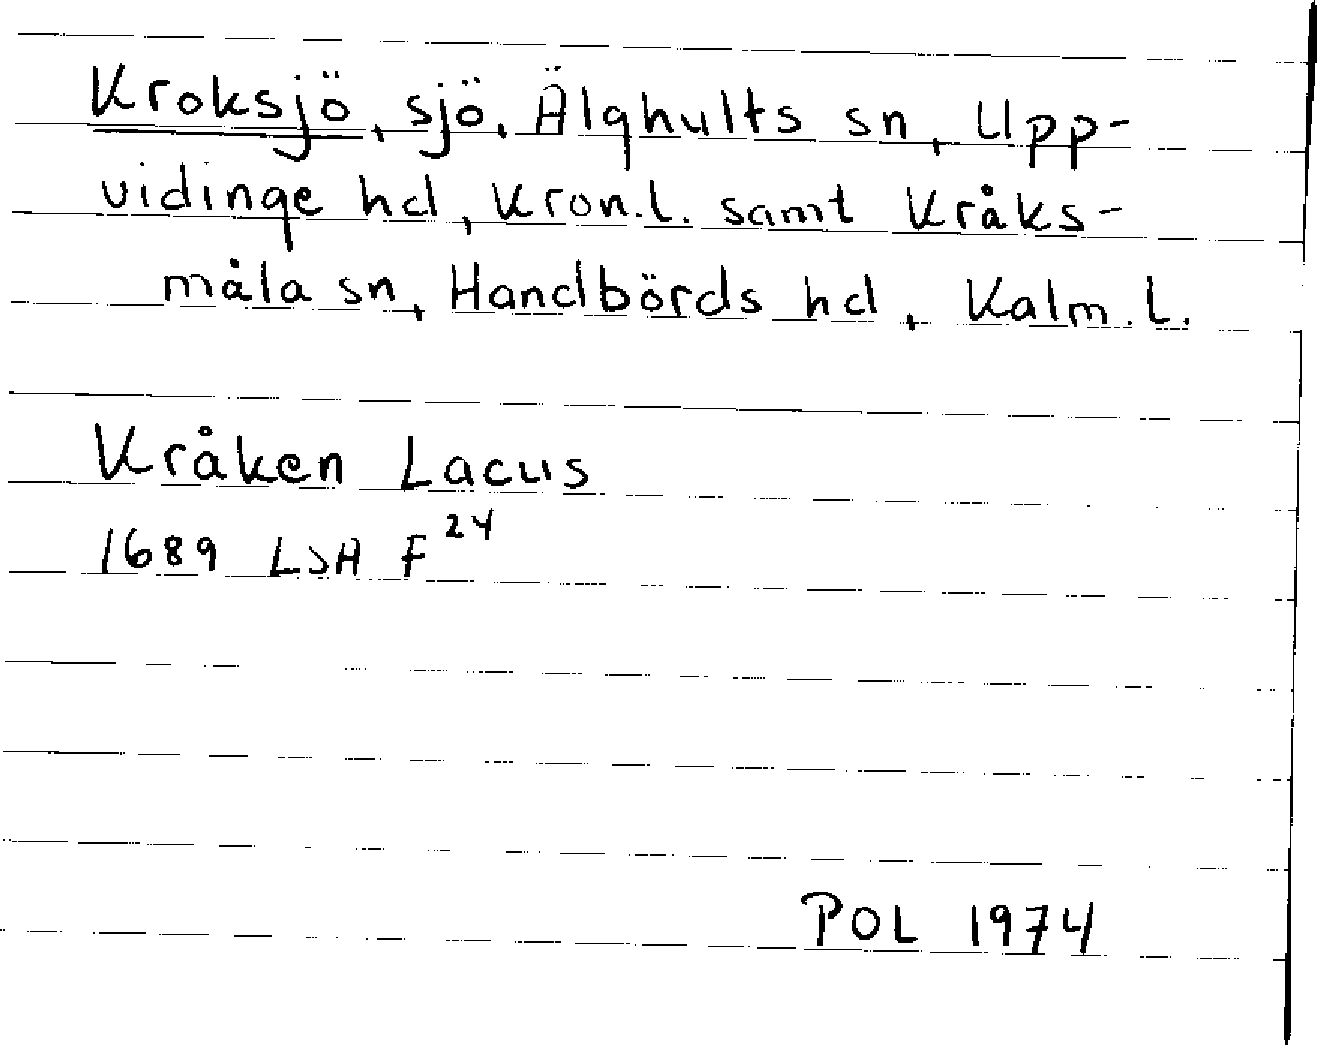 Kroksjö, sjö, Älghults sn, Upp-
vidinge hd, Kron.l. samt Kråks-
måla sn, Handbörds hd, Kalm.l.
Kråken Lacus
1689 LSA F 24
POL 1974